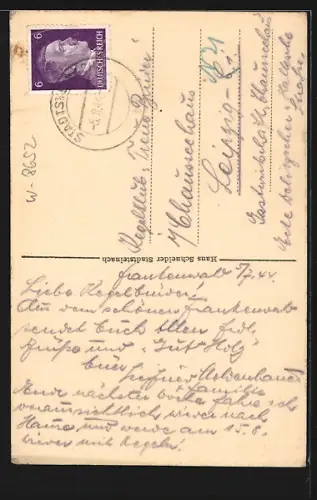 6 DEUTSCHES REICH 6
STADTSTEINACH
W-8652
1521
Kegelklub "Treue Brüder"
Chausseehaus
Leipzig-
Gastwirtschaft Chausseehaus
Ecke
Hans Schneider Stadtsteinach
Frankenwald 44
Liebe Kegelbrüder!
Aus dem schönen Frankenwald
sendet Euch allen frdl.
Grüße und "Gut Holz"
Euer
Familie
Ende nächster Woche fahre ich
voraussichtlich wieder nach
Hause und werde am 15.8.
wieder mit Kegeln!